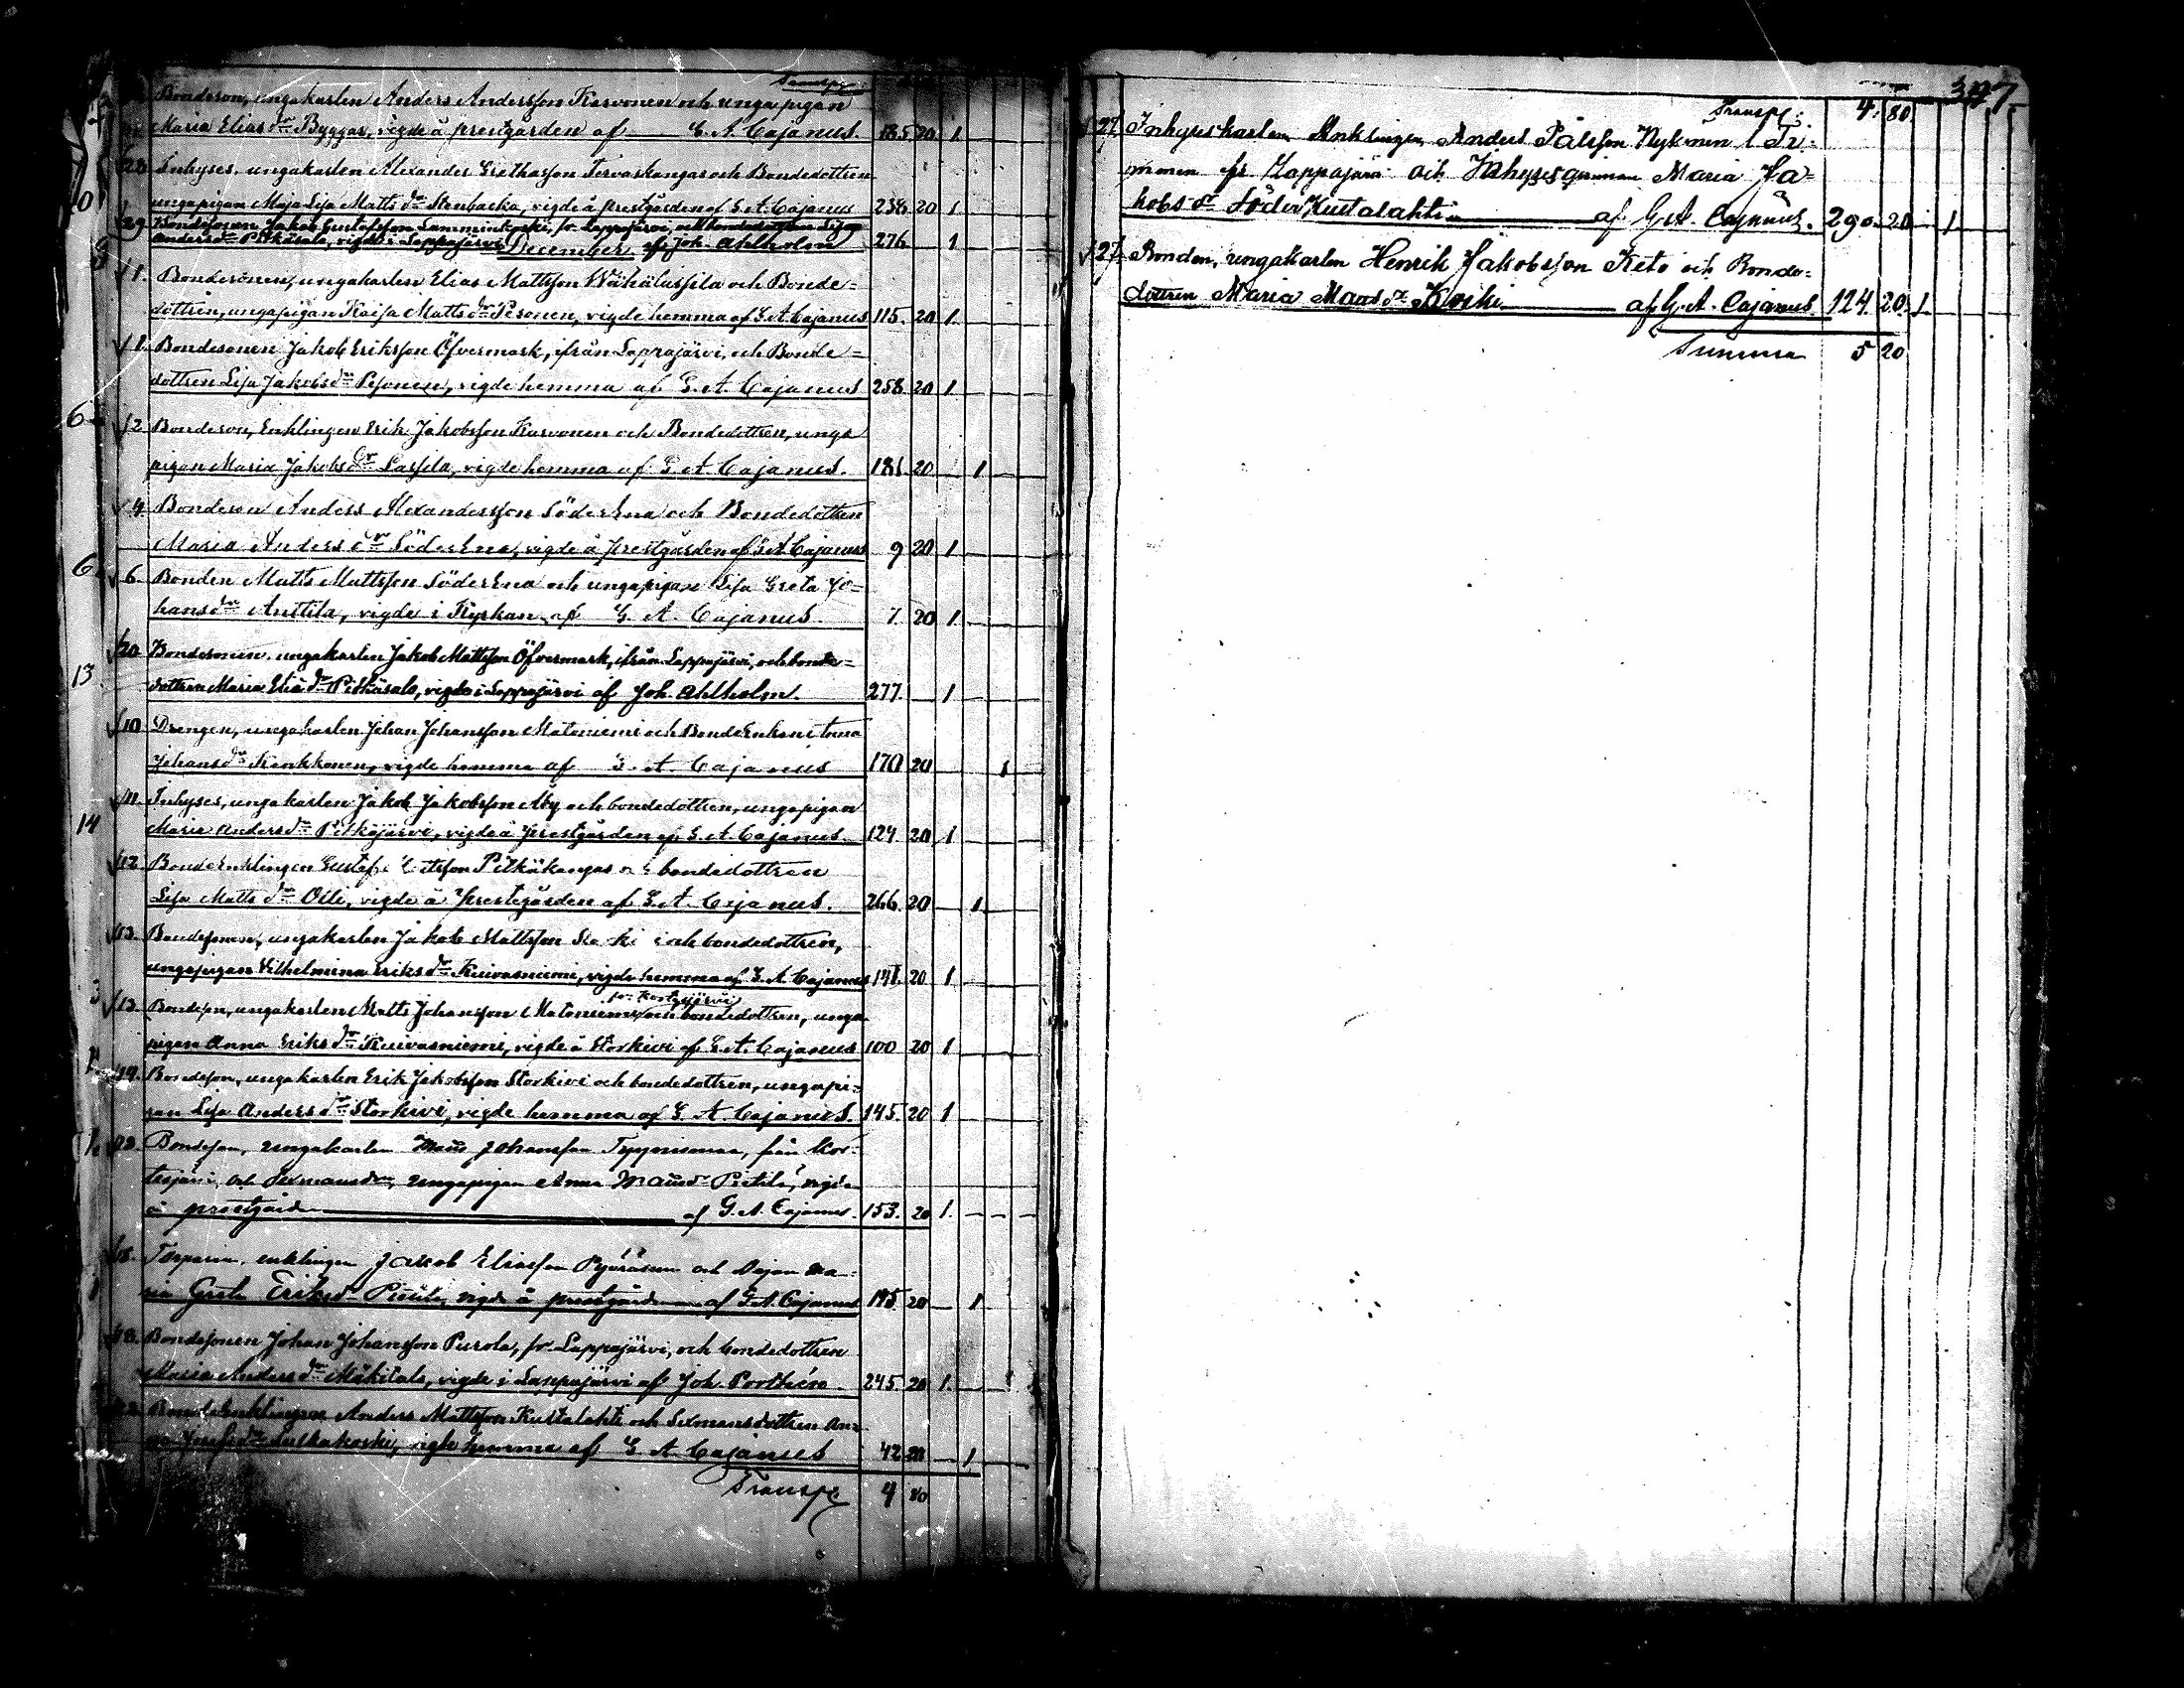 Transp.
Bondeson, ungakarlen Anders Andersson Karvonen och ungapigan
Maria Elias dr Byggas, vigde å prestgården af G. A. Cajanus. 185 20 1
28. Inhyses, ungakarlen Alexander Grethasson Tervaskangas och Bondedottren
ungapigan Maja Lisa Matts dr Stenbacka, vigde å prestgården af G. A. Cajanus 238 20 1
29. Bondesonen Jakob Gustafsson Lamminkoski, fr. Lappajärvi, och bondedottren Lisa
Anders dr Pitkäsalo, vigde i Lappajärvi af Joh. Ahlholm 276 1
December
1. Bondesonen, ungakarlen Elias Mattsson Wähälassila och Bonde=
dottren, ungapigan Kaisa Matts dr Pesonen, vigde hemma af G. A. Cajanus 115. 20 1.
1. Bondesonen Jakob Eriksson Öfvermark, ifrån Lappajärvi, och Bonde=
dottren Lisa Jakobs dr Pesonen, vigde hemma af G. A. Cajanus 258 20 1.
2. Bondeson, Enklingen Erik Jakobsson Karvonen och Bondedottren, unga
pigan Maria Jakobs dr Lassila, vigde hemma af G. A. Cajanus. 181 20 1
4. Bondeson Anders Alexandersson SöderEna och Bondedottren
Maria Anders dr SöderEna, vigde å prestgården af G. A. Cajanus 9 20 1
6. Bonden Matts Mattsson SöderEna och ungapigan Lisa Greta Jo=
hans dr Anttila, vigde i Kyrkan af G. A. Cajanus 7. 20 1.
20 Bondesonen, ungakarlen Jakob Mattsson Öfvermark, ifrån Lappajärvi, och bonde=
dottren Maria Elia dr Pitkäsalo, vigde i Lappajärvi af Joh. Ahlholm. 277. 1
10 Drengen, ungakarlen Johan Johansson Mätoniemi och BondeEnkan Anna
Johans dr Kankkonen, vigde hemma af G. A. Cajanus 170 20 1
11. Inhyses, ungakarlen Jakob Jakobsson Aby och bondedottren, ungapigan
Maria Anders dr Pitkäjärvi, vigde å prestgården af G. A. Cajanus 124. 20 1
12. BondeEnklingen Gustaf Pitkäkangas bondedottren
Lisa Matts dr Oili, vigde å Prestegården af G. A. Cajanus. 266. 20 1
13. Bondesonen, ungakarlen Jakob Mattsson och bondedottren,
ungapigan Vilhelmina Eriks dr Kuivasniemi, vigde hemma af G. A. Cajanus 141. 20 1
fr. Kortesjärvi
13. Bondeson, ungakarlen Matts Johansson Mätoniemi och bondedottren, unga
pigan Anna Eriks dr Kuivasniemi, vigde å Storkivi af G. A. Cajanus 100 20 1
14. Bondeson, ungakarlen Erik Jakobsson Storkivi och bondedottren, ungapi=
gan Lisa Anders dr Storkivi, vigde hemma af G. A. Cajanus. 145. 20 1
Bondeson, ungakarlen Matts Johansson från Kor=
tesjärvi, och ungapigan Anna Mattsdr Pietilä, vigde
å prestgård af G. A. Cajanus. 153. 20 1.
Torparen, enklingen Jacob Eliasson och Ma=
ria Greta Eriksdr vigde å prestgården af G. A. Cajanus 195. 20 1
Bondesonen Johan Johansson Purola, fr. Lappajärvi, och bondedottren
Maria Anders dr Mäkitalo, vigde i Lappajärvi af Joh. Porthén 245. 20 1.
BondeEnklingen Anders Mattsson Kustalahti och Sexmansdottren An=
na Josefs dr vigde hemma af G. A. Cajanus 42 20 1
Transp. 4 80
347.
Transp. 4. 80.
27. Inhyseskarlen Enklingen Anders Pålsson Nykänen l. Tri=
monen fr. Lappajärvi och Inhysesqvinnan Maria Ja=
kobs dr Söder Kustalahti af G. A. Cajanus. 290. 20 1
27. Bonden, ungakarlen Henrik Jakobsson Keto och Bonde=
dottren Maria Matts dr Koski af G. A. Cajanus 124. 20. 1.
Summa 5 20